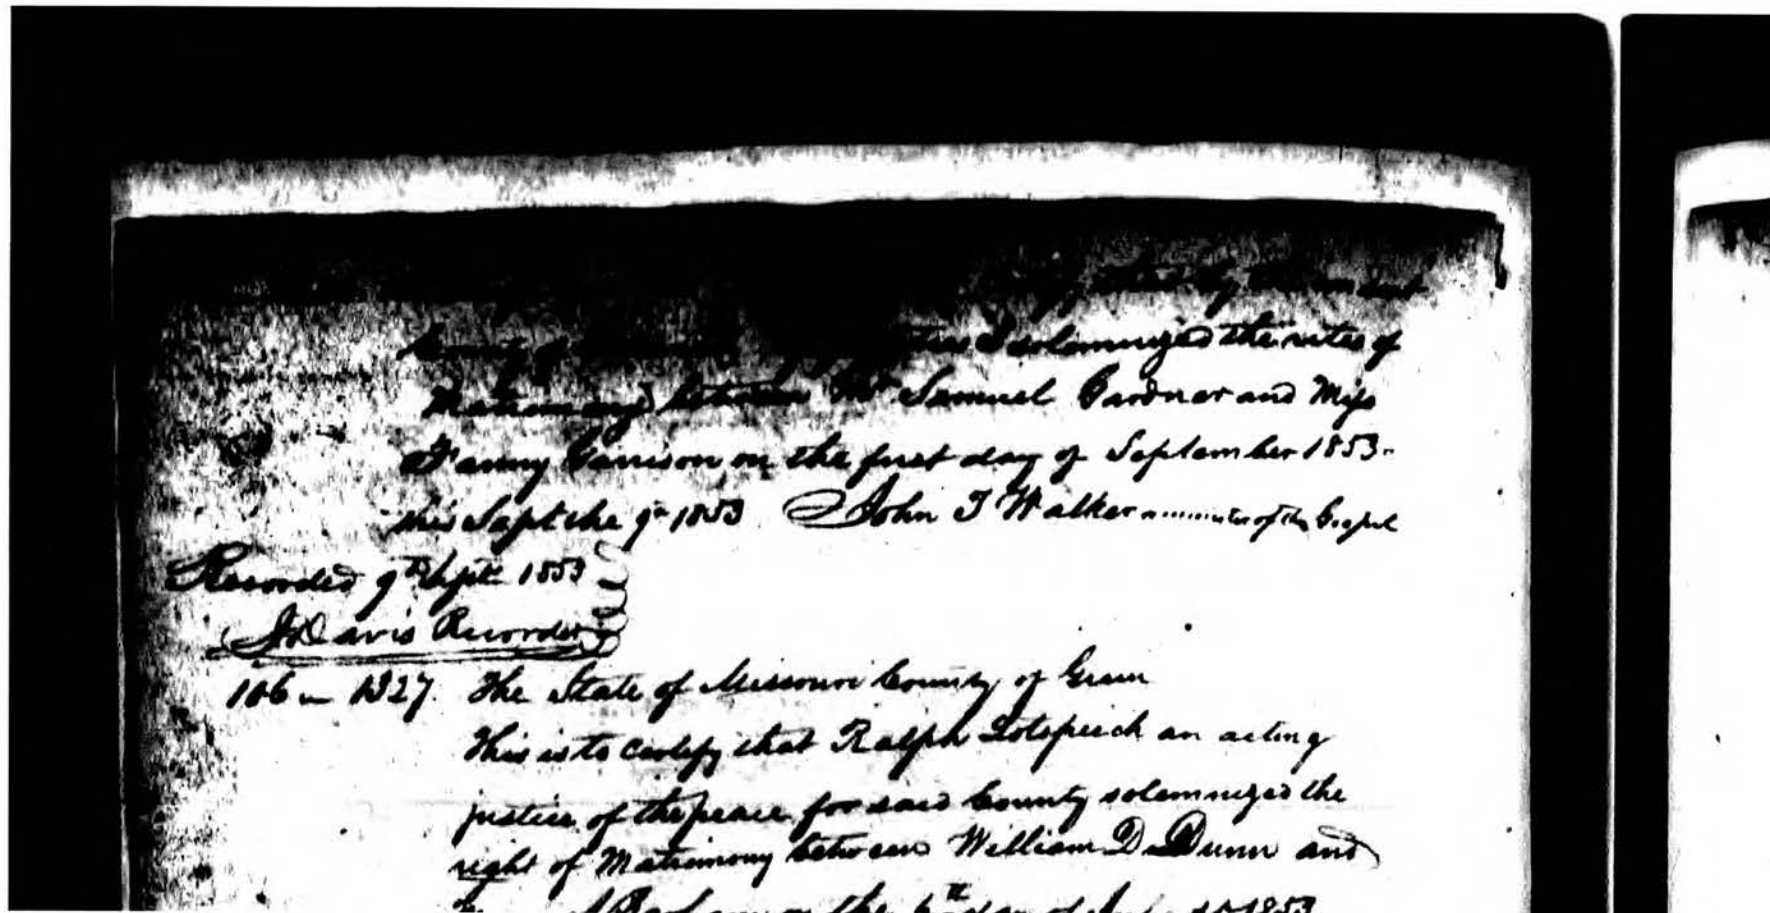 that by
County of solemnized the rites of
Matrimony between Mr Samuel Gardner and Miss
Fanny Garrison on the first day of September 1853.
this Sept the 9th 1853 John T Walker a minister of the Gospel
Recorded 9th Sept 1853
J Davis Recorder
106 1327. The State of Missouri County of Green
This is to certify that Ralph Lotspeich an acting
justice of the peace for said County solemnized the
right of Matrimony between William D Dunn and
on the day of 1853